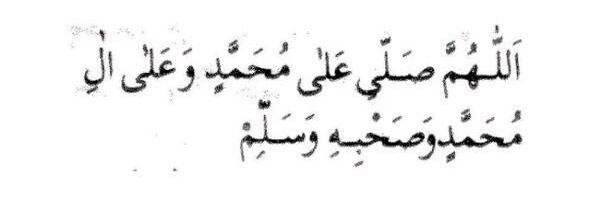 اَللّٰهُمَّ صَلِّي عَلٰى مُحَمَّدٍ وَعَلٰى اٰلِ
مُحَمَّدٍ وَصَحْبِهِ وَسَلِّمْ